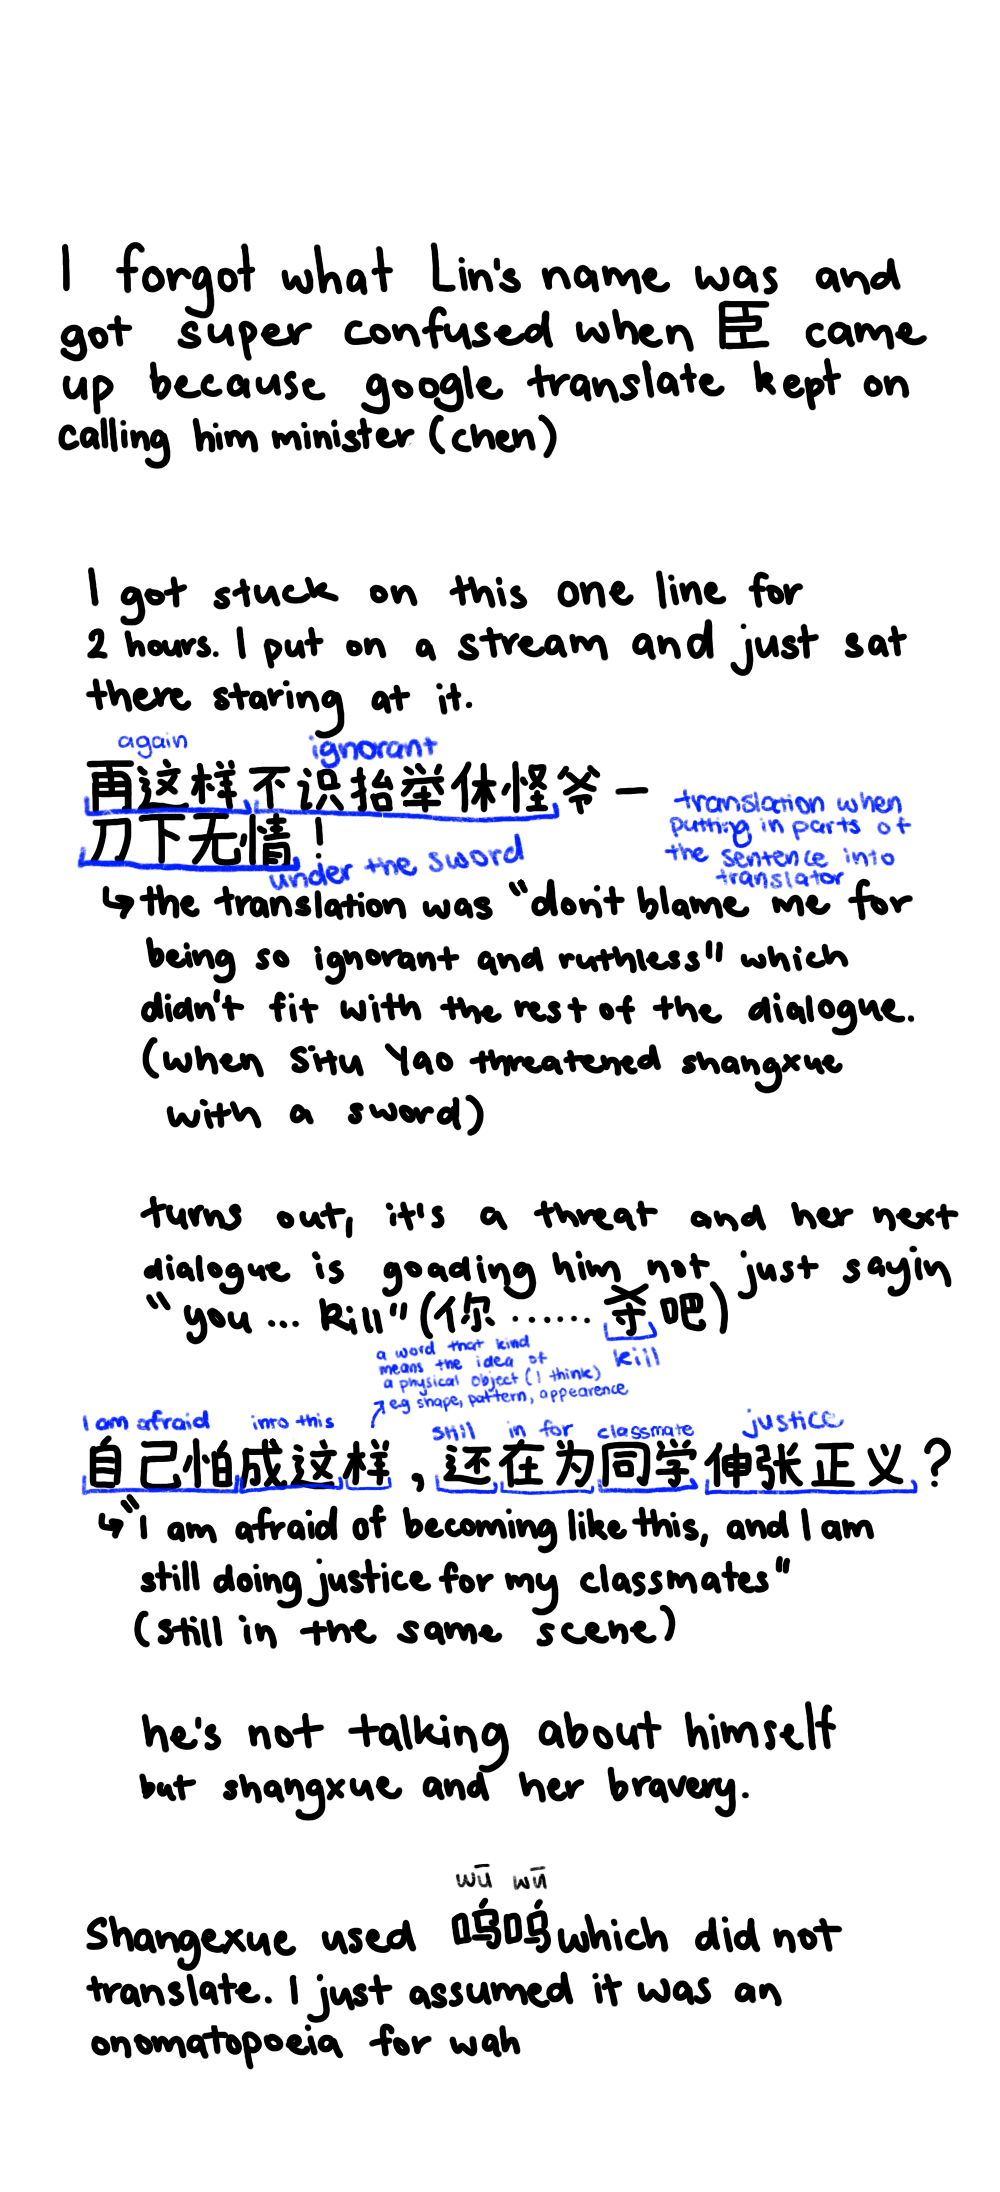 I forgot what Lin's name was and
got super confused when 臣 came
up because google translate kept on
calling him minister (chen)
I got stuck on this one line for
2 hours. I put on a stream and just sat
there staring at it.
again
ignorant
再这样不识抬举休怪爷 —
刀下无情!
under the sword
translation when
putting in parts of
the sentence into
translator
↳ the translation was "don't blame me for
being so ignorant and ruthless" which
didn't fit with the rest of the dialogue.
(when Situ Yao threatened shangxue
with a sword)
turns out, it's a threat and her next
dialogue is goading him not just sayin
"you ... kill" (你 ...... 吧)
kill
a word that kind
means the idea of
a physical object (I think)
e.g shape, pattern, appearence
I am afraid
into this
still
in for
classmate
justice
自己怕成这样,还在为同学伸张正义?
↳ "I am afraid of becoming like this, and I am
still doing justice for my classmates"
(still in the same scene)
he's not talking about himself
but shangxue and her bravery.
wū wū
Shangexue used 呜呜 which did not
translate. I just assumed it was an
onomatopoeia for wah